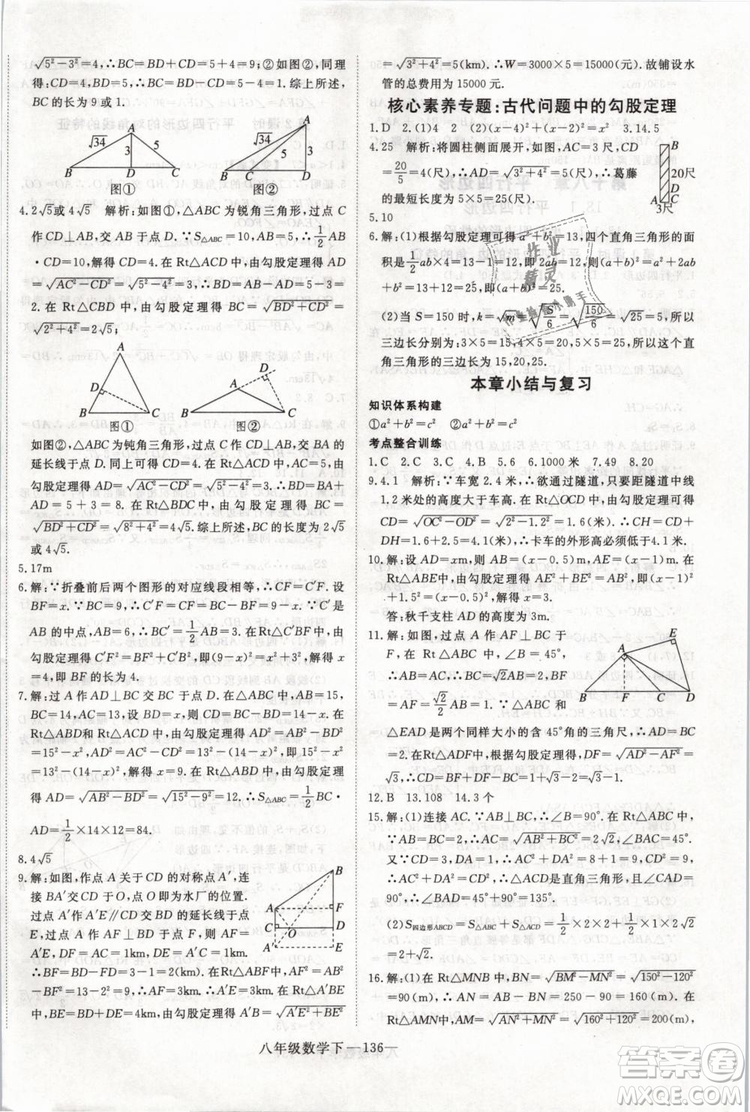 √(5²－3²)=4，∴BC=BD＋CD=9.如图②，同理
得：CD=4，BD=5，∴BC=BD－CD=1.综上所述，
BC的长为9或1.
√34 5 3
B D C
图①
A √34 5 3
B C D
图②
4.2√5或4√5　解析：如图①，△ABC为锐角三角形，过点
C作CD⊥AB，交AB于点D，∵S△ABC=10，∴1/2 AB
·CD=10，解得CD=4.在Rt△ACD中，由勾股定理
得AD=√(AC²－CD²)=√(5²－4²)=3，∴BD=AB
－AD=5－3=2.在Rt△CBD中，由勾股定理得BC
=√(BD²＋CD²)=√(2²＋4²)=2√5；
A
D
B C
图①
D
A
B C
图②
如图②，△ABC为钝角三角形，过点C作CD⊥AB，交BA的
延长线于点D.同上可得CD=4.在Rt△ACD中，由
勾股定理得AD=√(AC²－CD²)=√(5²－4²)=3，∴BD=BA
＋AD=5＋3=8.在Rt△BDC中，由勾股定理得BC
=√(BD²＋CD²)=√(8²＋4²)=4√5.综上所述，BC的长为
2√5或4√5.
5.17m
6.解：∵折叠前后两个图形的对应线段相等，∴CF=C′F.设
BF=x，∵BC=9，∴C′F=CF=BC－BF=9－x.由题
意得BC′=1/2 AB=1/2×6=3.在Rt△C′BF中，由
勾股定理得C′F²=BF²＋C′B²，即(9－x)²=x²＋3²，解得x=4，
即BF的长为4.
7.解：过点A作AD⊥BC，交BC于点D，∵AB=15，
BC=14，AC=13，设BD=x，∴CD=14－x.在
Rt△ABD和Rt△ACD中，由勾股定理得AD²=AB²－
BD²=AC²－CD²，即15²－x²=13²－(14－x)²，解得x=9，
∴AD=√(AB²－BD²)=√(15²－9²)=12，∴S△ABC=1/2 BC·
AD=1/2×14×12=84.
8.4√5
9.解：如图，作点A关于CD的对称点A′，连
接BA′交CD于点O，点O即为水厂的位置.
过点A′作A′E∥CD交BD的延长线于点E，
过点A作AF⊥BD于点F，则AF=A′E，DF
=AC=1km，DE=A′C=1km.∵BD=3km，
∴BF=BD－FD=2km.在Rt△ABF中，AF²=AB²－
BF²=12，∴A′E²=AF²=12.在Rt△A′BE中，
BE=BD＋DE=4km，由勾股定理得BA′=√(A′E²＋BE²)=
√(3²＋4²)=5(km).∴W=3000×5=15000(元).故铺设水
管的总费用为15000元.
核心素养专题：古代问题中的勾股定理
1.D　2.(1)4　2　(2)(x－4)²＋(x－2)²=x²　3.14.5
4.25　解析：将圆柱侧面展开，如图，AC=3尺，CD=
20/5=4(尺)，∴AD=√(3²＋4²)=5(尺)，∴葛藤
的最短长度为5×5=25(尺).
20尺
3尺
5.10
6.解：(1)根据勾股定理可得a²＋b²=13，四个直角三角形的面
积是1/2 ab×4=13－1=12，即2ab=12，则(a＋b)²=a²＋2ab＋b²
=13＋12=25.
(2)当S=150时，k=√m=√(S/6)=√(150/6)=√25=5，∴
三边长分别为3×5=15，4×5=20，5×5=25，∴这个直
角三角形的三边长为15，20，25.
本章小结与复习
知识体系构建　①a²＋b²=c²　②a²＋b²=c²
考点整合训练
1.C　2.C　3.C　4.B　5.6　6.1000米　7.49　8.20
9.4.1　解析：∵车宽2.4米，∴欲通过隧道，只要距隧道中线
1.2米处的高度大于车高.在Rt△OCD中，由勾股定理可得
CD=√(OC²－OD²)=√(2²－1.2²)=1.6(米).∴CH=CD＋
DH=1.6＋2.5=4.1(米)，∴卡车的外形高必须低于4.1米.
10.解：设AD=x米，则AB=(x－0.5)米，AE=(x－1)米.
在Rt△ABE中，AE²＋BE²=AB²，即(x－1)²＋1.5²
=(x－0.5)²，解得x=3.
答：秋千支柱AD的高度为3m.
11.解：如图，过点A作AF⊥BC于
F，在Rt△ABC中，∠B=45°，∴
BC=√2AB=2，BF=AF=
√2/2 AB=1.
E
A
B F C D
∵两个同样大小的含45°角的三角尺，∴AD=BC=2，
在Rt△ADF中，根据勾股定理得，DF=√(AD²－AF²)=
√3，∴CD=BF＋DF－BC=1＋√3－2=√3－1.
12.B　13.108　14.3个
15.解：(1)连接AC.∵AB=BC=2，∠B=90°，∴AC=2√2.
又∵CD=3，DA=1，∴AC²＋DA²=8＋1=9，CD²=9，
∴AC²＋DA²=CD²，∴△ACD是直角三角形，∴∠CAD=90°.
又∵∠BAC=45°，∴∠DAB=45°＋90°=135°.
(2)S四边形ABCD=S△ABC＋S△ACD=1/2×2×2＋1/2×1×2√2
=2＋√2.
16.解：(1)在Rt△MNB中，BN=√(BM²－MN²)=√(150²－120²)
=90(m)，∴AN=AB－BN=250－90=160(m).在
Rt△AMN中，AM=√(AN²＋MN²)=√(160²＋120²)=
200(m).∴供水点M到喷泉A，B需要铺设的管道总长
八年级数学下—136—
答案圈
MXQE.COM